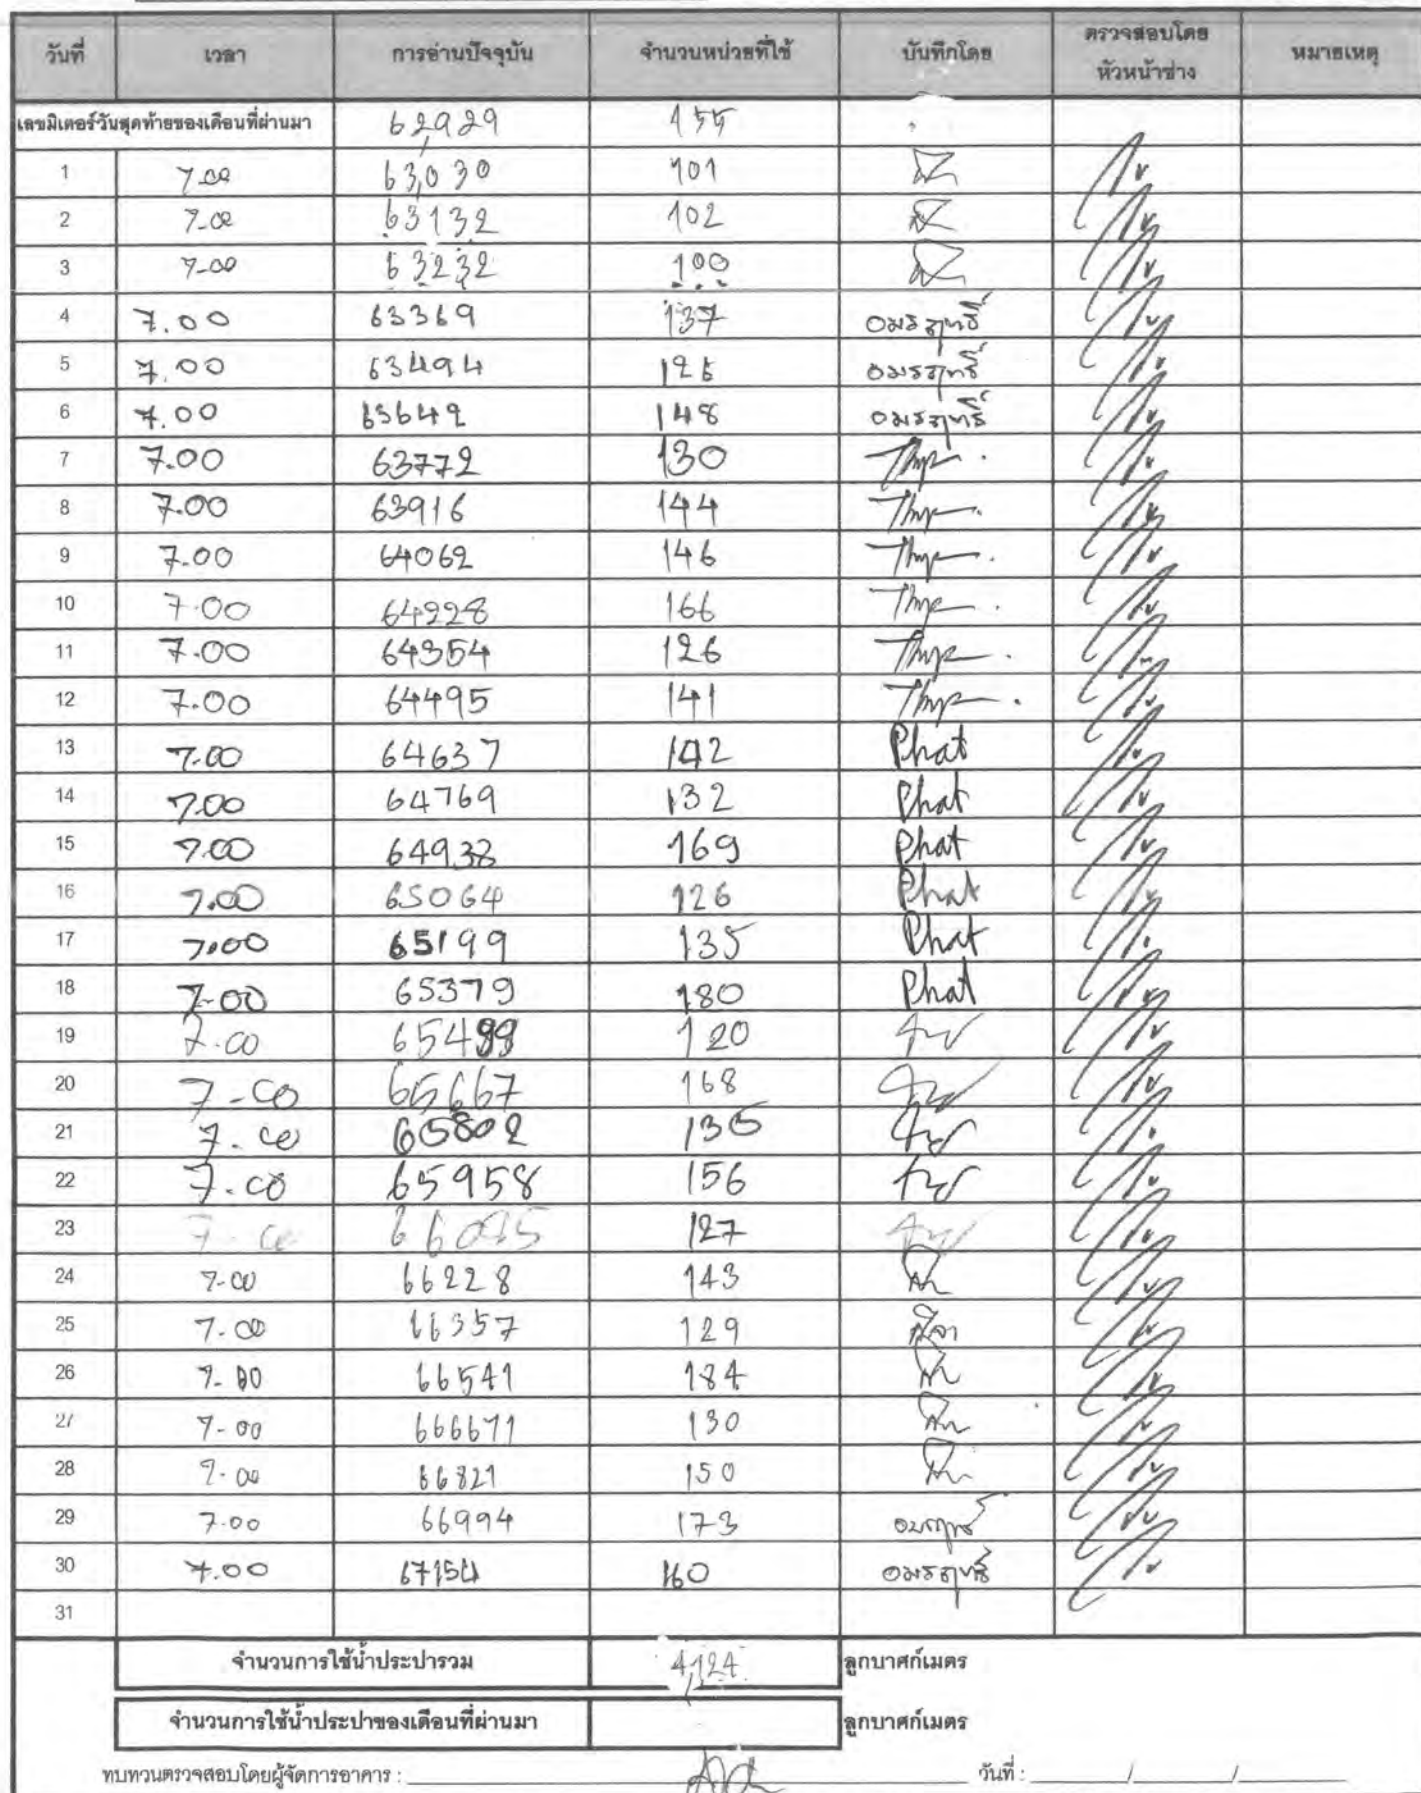 วันที่ เวลา การอ่านปัจจุบัน จำนวนหน่วยที่ใช้ บันทึกโดย ตรวจสอบโดย หัวหน้าช่าง หมายเหตุ
เลขมิเตอร์วันสุดท้ายของเดือนที่ผ่านมา 62,929 155
1 7.00 63,030 101
2 7.00 63132 102
3 7-00 63232 100
4 7.00 63369 137 อมรฤทธิ์
5 7.00 63494 125 อมรฤทธิ์
6 7.00 63642 148 อมรฤทธิ์
7 7.00 63772 130
8 7.00 63916 144
9 7.00 64062 146
10 7.00 64228 166
11 7.00 64354 126
12 7.00 64495 141
13 7.00 64637 142 Phat
14 7.00 64769 132 Phat
15 7.00 64938 169 Phat
16 7.00 65064 126 Phat
17 7.00 65199 135 Phat
18 7-00 65379 180 Phat
19 7.00 65499 120
20 7-00 65667 168
21 7.00 65802 135
22 7.00 65958 156
23 7-00 66085 127
24 7-00 66228 143
25 7.00 66357 129
26 7-00 66541 184
27 7-00 666671 130
28 7.00 66821 150
29 7.00 66994 173
30 7.00 67154 160 อมรฤทธิ์
31
จำนวนการใช้น้ำประปารวม 4,124 ลูกบาศก์เมตร
จำนวนการใช้น้ำประปาของเดือนที่ผ่านมา ลูกบาศก์เมตร
ทบทวนตรวจสอบโดยผู้จัดการอาคาร : วันที่ : / /